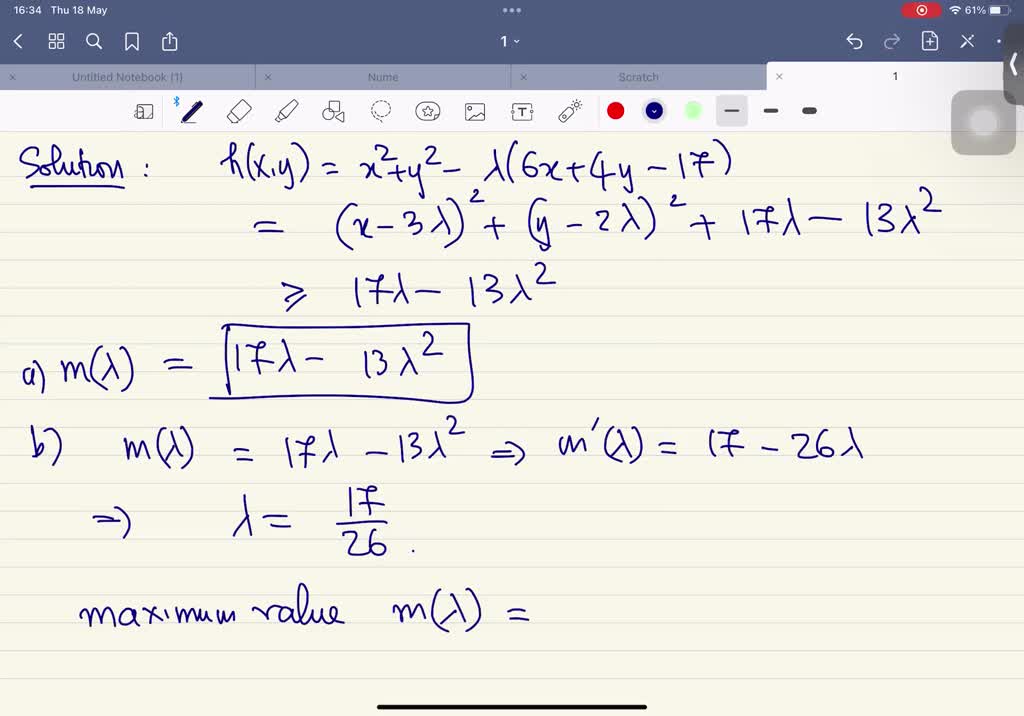 16:34 Thu 18 May 61%
1
Untitled Notebook (1) Nume Scratch 1
Solution : h(x,y) = x²+y² - λ(6x+4y-17)
= (x-3λ)² + (y-2λ)² + 17λ - 13λ²
≥ 17λ - 13λ²
a) m(λ) = 17λ - 13λ²
b) m(λ) = 17λ - 13λ² => m'(λ) = 17 - 26λ
=> λ = 17/26 .
maximum value m(λ) =